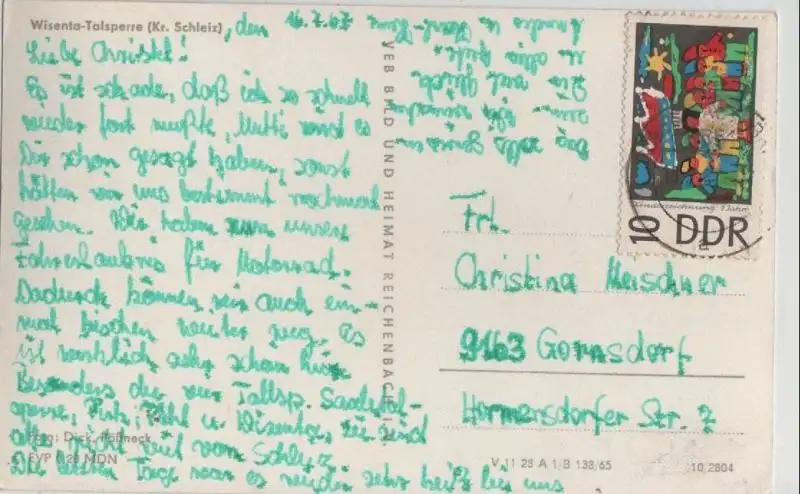 Wisenta-Talsperre (Kr. Schleiz), den 16.7.67
Liebe Christel!
Es ist schade, daß ich so schnell
wieder fort mußte, Mutti wird es
Dir schon gesagt haben, sonst
hätten wir uns bestimmt nochmal
gesehen. Wir haben nun unsere
Fahrerlaubnis für Motorrad.
Dadurch können wir auch ein-
mal bischen weiter weg. Es
ist wirklich sehr schön hier.
Besonders die vier Tallsp. Saaletal-
sperre, u. Wisenta, sie sind
alle nicht weit von Schleiz
Die letzten Tage war es wieder sehr heiß bei uns
Foto: Dick, Pößneck
EVP 0,20 MDN
VEB BILD UND HEIMAT REICHENBACH
V 11 28 A 1/B 138/65
10/2804
Das solls
Dir viel
u. alles Gute
u.
Kinderzeichnung
10 DDR
Frl.
Christina Meischner
9163 Gornsdorf
Hormersdorfer Str. 7